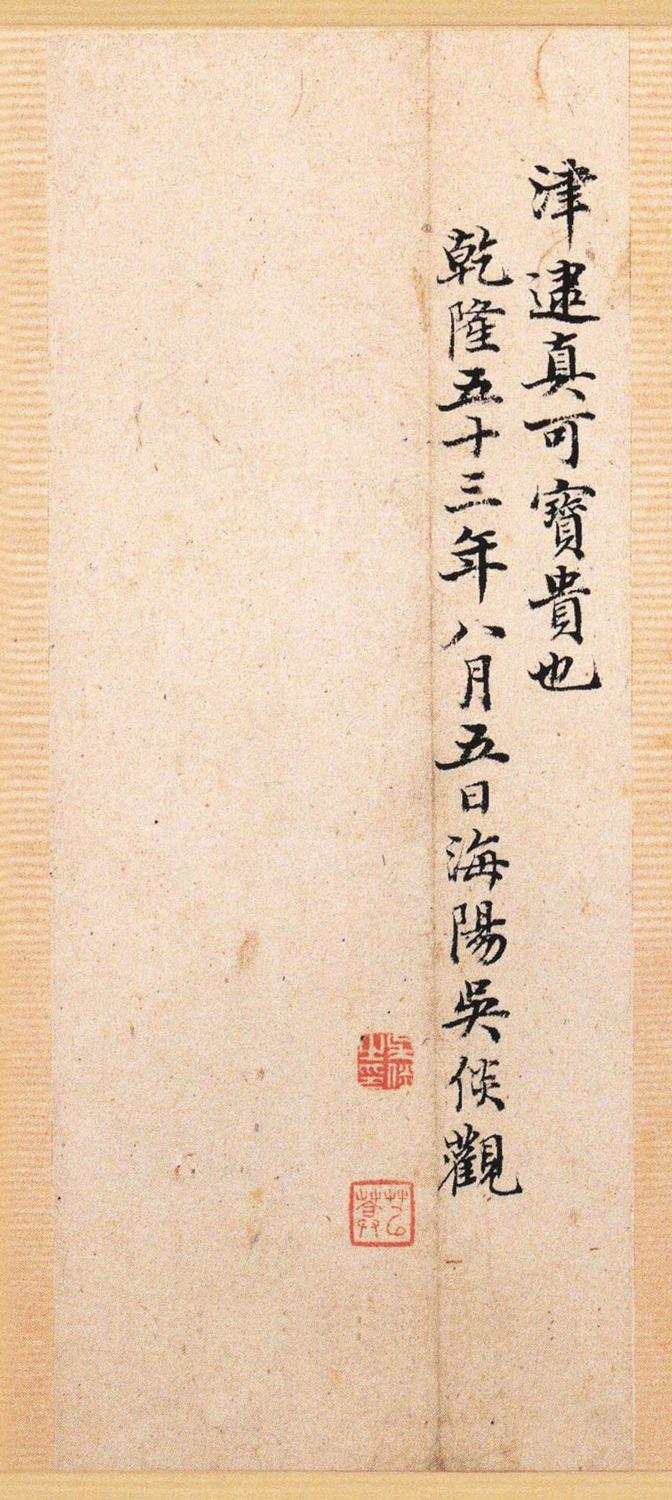 津逮真可寶貴也
乾隆五十三年八月五日海陽吳倓觀